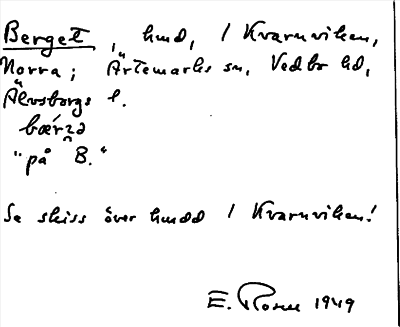 Berget, hmd, / Kvarnviken,
Norra; Ärtemarks sn, Vedbo hd,
Älvsborgs l.
bæŕʒə
"på B."
Se skiss över hmdd / Kvarnviken!
E. Rosen 1949